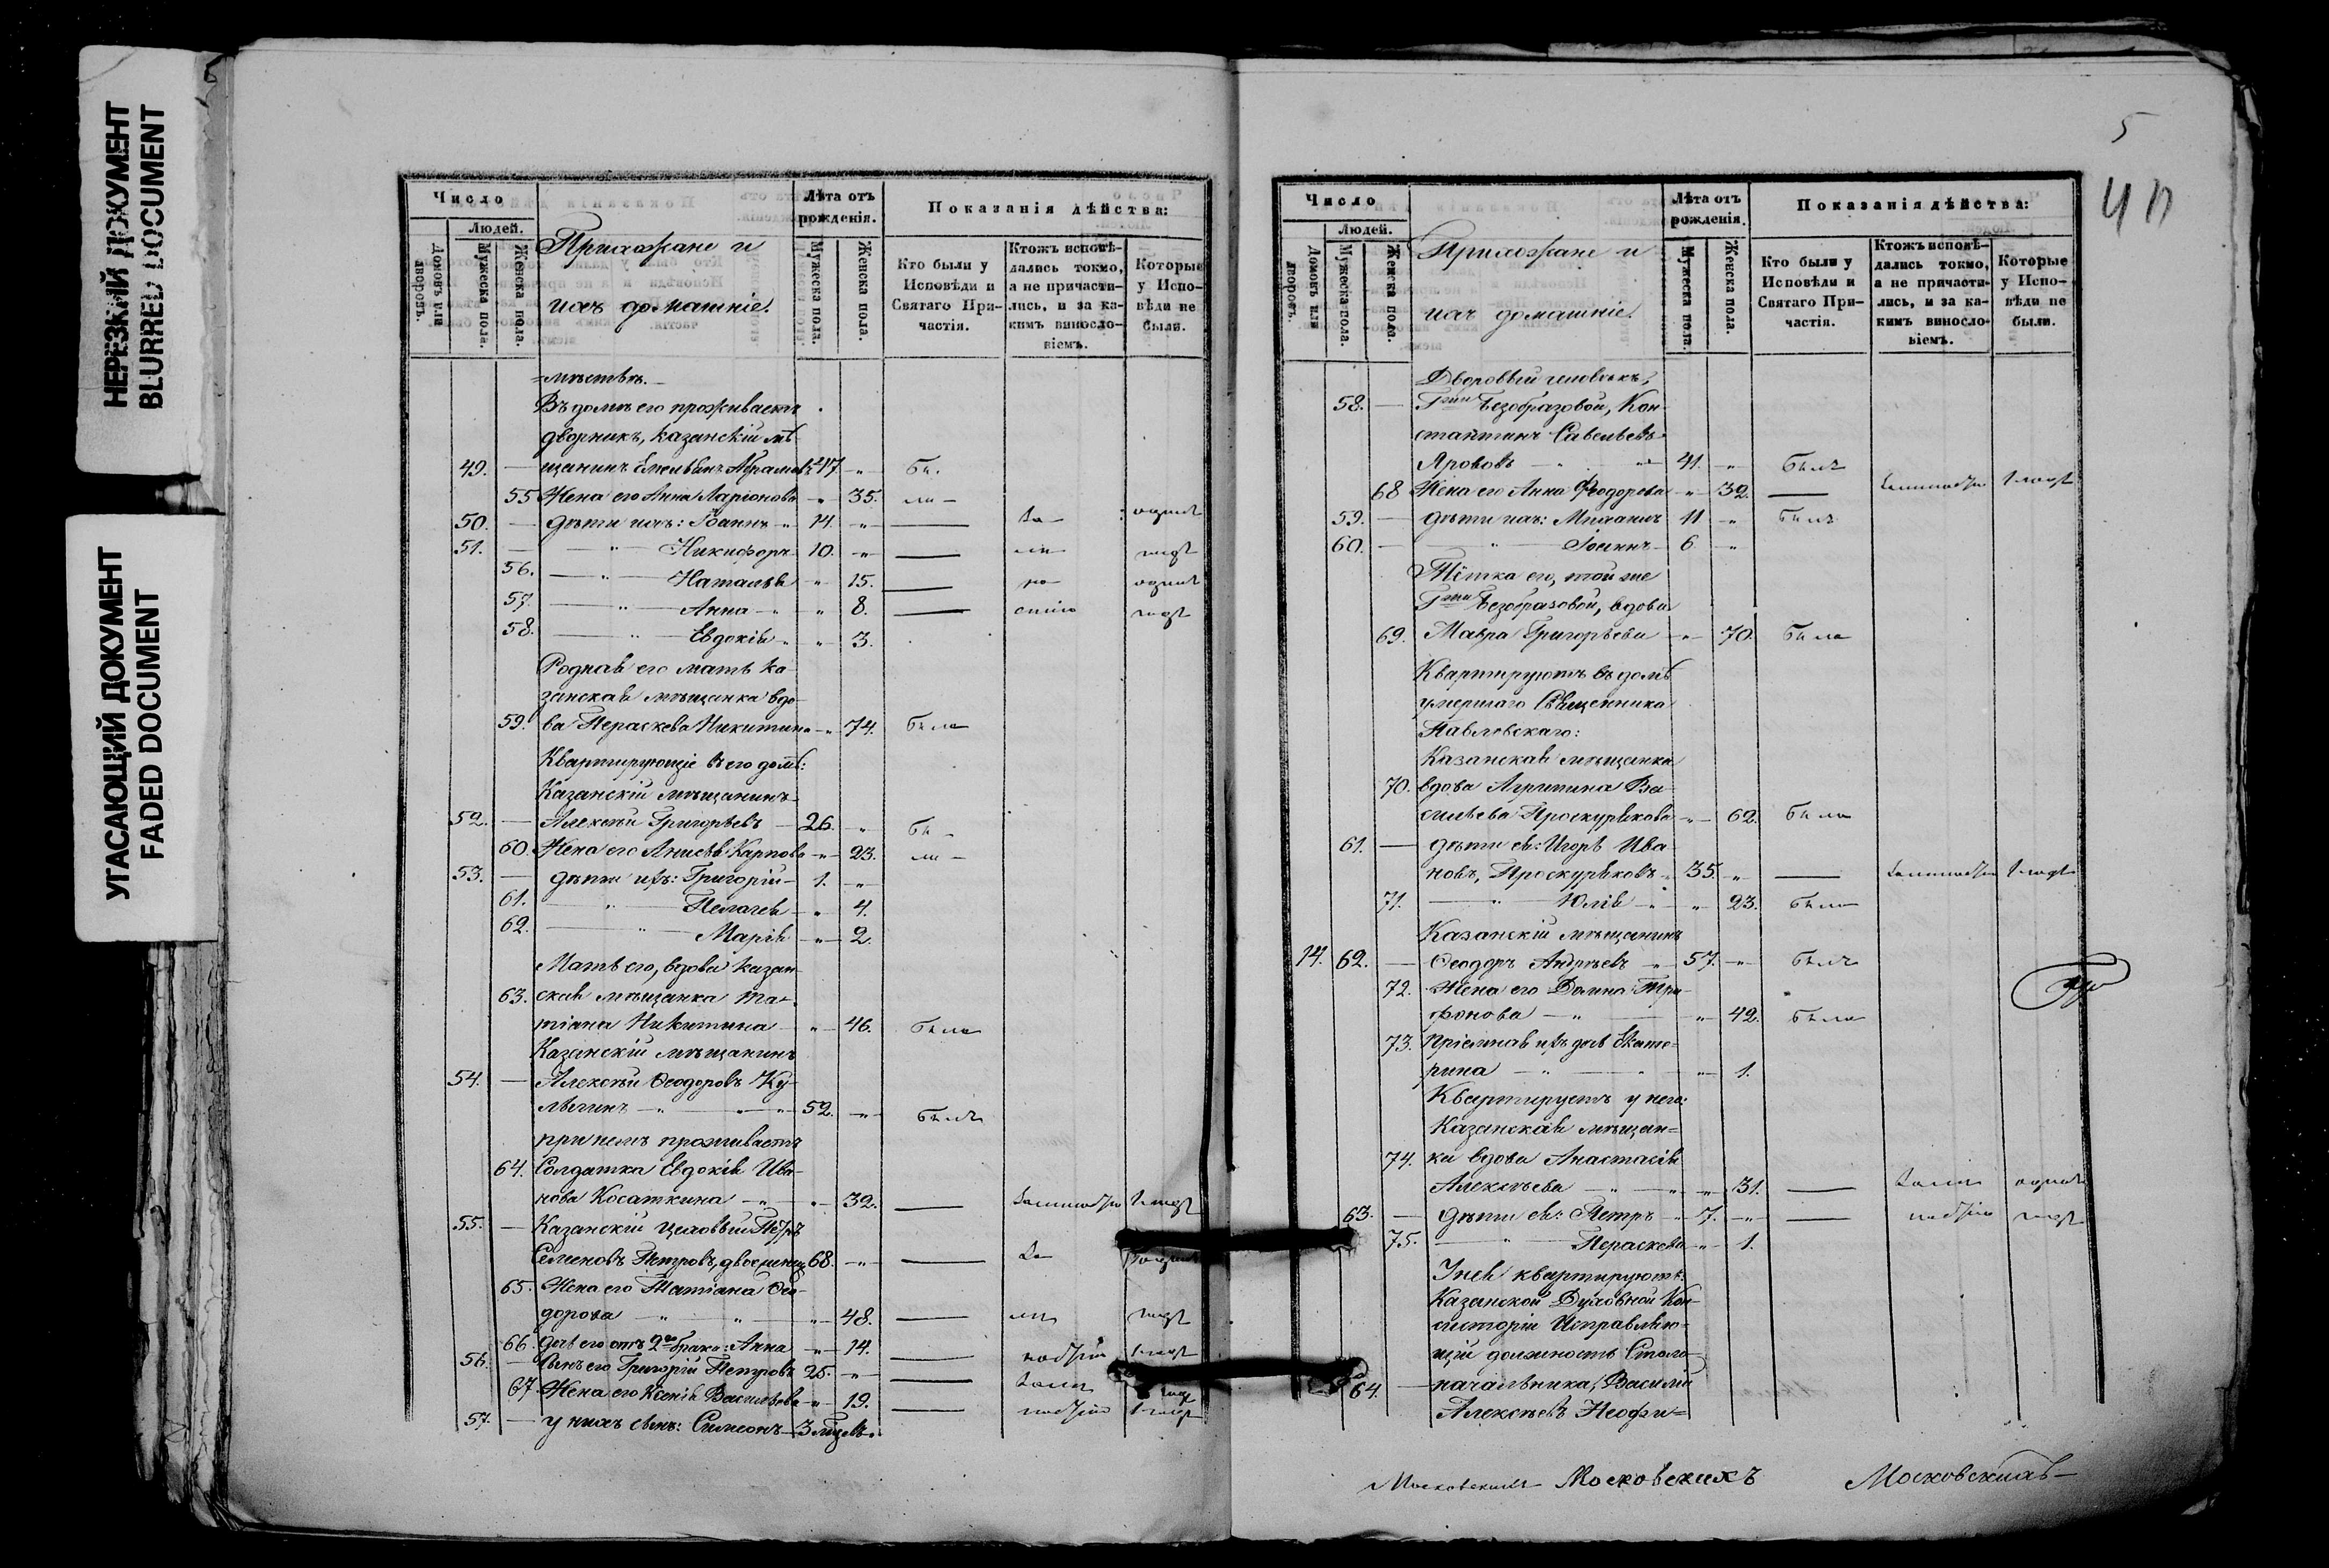 НЕРЕЗКИЙ ДОКУМЕНТ
BLURRED DOCUMENT
УГАСАЮЩИЙ ДОКУМЕНТ
FADED DOCUMENT
Число
Людей.
Домовъ или дворовъ.
Мужеска пола.
Женска пола.
Прихожане и
ихъ домашніе.
Лѣта отъ рожденія.
Мужеска пола.
Женска пола.
Показанія дѣйства:
Кто были у Исповѣди и Святаго Причастія.
Ктожъ исповѣ-
дались токмо,
а не причасти-
лись, и за ка-
кимъ винносло-
віемъ.
Которые
у Испо-
вѣди не
были.
=мѣствѣ.
Въ домѣ его проживаетъ
дворникъ, казанскій мѣ-
49. — щанинъ Емельянъ Абрамовъ 47 -„- Бы-
55 Жена его Анна Ларіонова -„- 35. ли -
50. — дѣти ихъ: Іоаннъ -„ 14. -„- —
51. — -„- Никифоръ 10. -„- —
56. -„- Наталья -„- 15. —
57. -„- Анна -„ „ 8. —
58. -„- Евдокія „ -„- 3.
Родная его мать ка-
занская мѣщанка вдо-
59. ва Параскева Никитина -„- 74. Была
Квартирующіе въ его домѣ:
Казанскій мѣщанинъ
52. — Алексѣй Григорьевъ — 26. -„- Бы -
60. Жена его Анисья Карпова -„- 23. ли -
53. — дѣти ихъ: Григорій 1. -„-
61. -„- Пелагея -„- 4.
62. -„- Марія -„- 2.
Мать его, вдова казан-
63. ская мѣщанка Та-
тіана Никитина -„- 46. Была
Казанскій мѣщанинъ
54. — Алексѣй Ѳеодоровъ Ку-
лыгинъ -„- -„- 52. -„- Былъ
при немъ проживаетъ
64. Солдатка Евдокія Ива-
нова Косаткина -„- „- 32. —
55. — Казанскій цеховый Петръ
Семеновъ Петровъ, двоеженец 68. -„- —
65. Жена его Татіана Ѳео-
дорова „ „ „- 48. —
66. дочь его отъ 2го брака: Анна -„- 14. —
56. — Сынъ его Григорій Петровъ 25. -„- —
67. Жена его Ксенія Васильева -„- 19. —
57. — у нихъ сынъ: Симеонъ 3 мѣсяц.
5
Число
Людей.
Домовъ или дворовъ.
Мужеска пола.
Женска пола.
Прихожане и
ихъ домашніе.
Лѣта отъ рожденія.
Мужеска пола.
Женска пола.
Показанія дѣйства:
Кто были у Исповѣди и Святаго Причастія.
Ктожъ исповѣ-
дались токмо,
а не причасти-
лись, и за ка-
кимъ винносло-
віемъ.
Которые
у Испо-
вѣди не
были.
Дворовый человѣкъ,
58. — Гжи Безобразовой, Кон-
стантинъ Савельевъ
Ярововъ — „ 41. -„- Былъ
68 Жена его Анна Ѳеодорова -„- 32. —
59. — дѣти ихъ: Михаилъ 11 -„- Былъ
60. — -„- Іоаннъ 6. -„
Тётка его, той же
Гжи Безобразовой, вдова
69. Мавра Григорьева -„- 70. Была
Квартируютъ въ домѣ
умершаго Священника
Павловскаго:
Казанская мѣщанка
70. вдова Агрипина Ва-
сильева Проскурякова -„- 62. Была
61. — дѣти ея: Игорь Ива-
новъ, Проскуряковъ 35. „ —
71. -„- Юлія -„- „ 23. Была
Казанскій мѣщанинъ
14. 62. — Ѳеодоръ Андреевъ -„- 57. -„- Былъ
72. Жена его Домна Три-
фонова -„- „ 42. Была
73. Пріемная ихъ дочь Екате-
рина -„- -„- 1.
Квартируетъ у него:
Казанская мѣщан-
74. ка вдова Анастасія
Алексѣева -„- „ 31. —
63. — дѣти ея: Петръ 7. -„- —
75. -„- Параскева -„- 1.
У нея квартируютъ:
Казанской Духовной Кон-
систоріи Исправляю-
щій должность Столо-
64. — начальника, Василій
Алексѣевъ Неофи=
Московскихъ Московскихъ Московскихъ